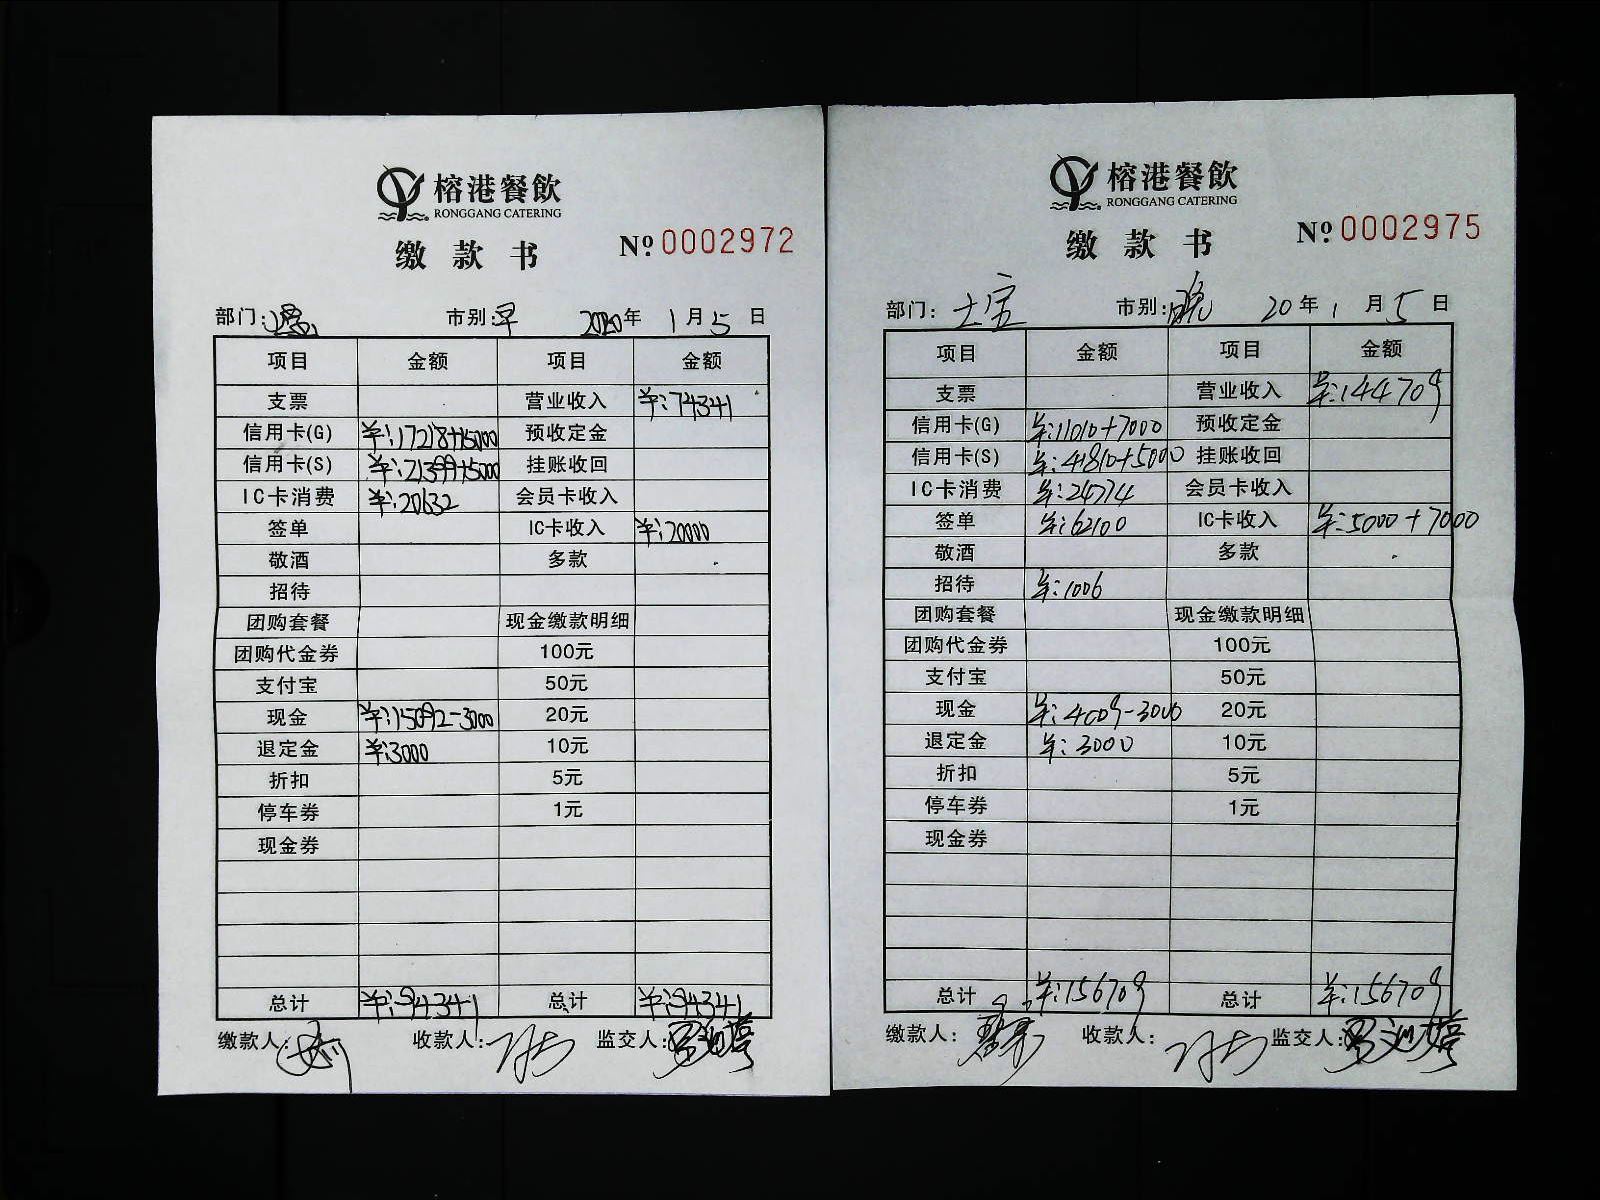 榕港餐飲
RONGGANG CATERING
缴款书 № 0002972
部门: 市别: 早 2020年 1月 5日
项目 金额 项目 金额
支票 营业收入 ¥:74341
信用卡(G) ¥:17218+15000 预收定金
信用卡(S) ¥:21399+5000 挂账收回
IC卡消费 ¥:20632 会员卡收入
签单 IC卡收入 ¥:20000
敬酒 多款
招待
团购套餐 现金缴款明细
团购代金券 100元
支付宝 50元
现金 ¥:15092-3000 20元
退定金 ¥:3000 10元
折扣 5元
停车券 1元
现金券
总计 ¥:94341 总计 ¥:94341
缴款人: 收款人: 监交人:
榕港餐飲
RONGGANG CATERING
缴款书 № 0002975
部门: 土宝 市别: 晚 20年 1月 5日
项目 金额 项目 金额
支票 营业收入 ¥:144709
信用卡(G) ¥:11010+7000 预收定金
信用卡(S) ¥:41810+5000 挂账收回
IC卡消费 ¥:24774 会员卡收入
签单 ¥:62100 IC卡收入 ¥:5000+7000
敬酒 多款
招待 ¥:1006
团购套餐 现金缴款明细
团购代金券 100元
支付宝 50元
现金 ¥:4009-3000 20元
退定金 ¥:3000 10元
折扣 5元
停车券 1元
现金券
总计 ¥:156709 总计 ¥:156709
缴款人: 收款人: 监交人: